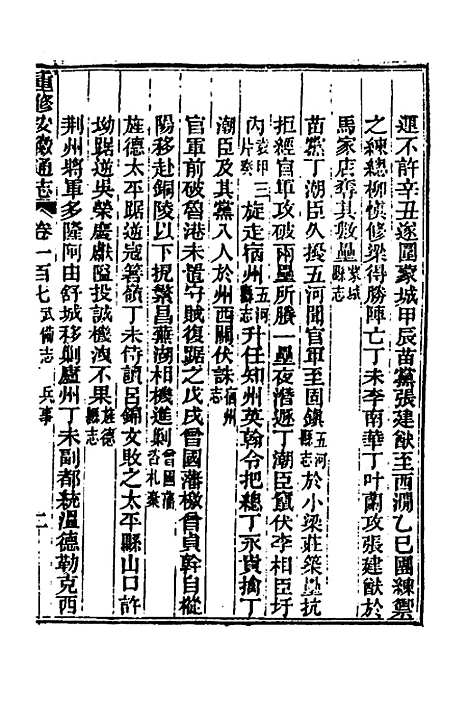 運不許辛丑遂圍蒙城甲辰苗黨張建猷至西澗乙巳團練禦
之練總柳慎修梁得勝陣亡丁未李南華丁叶蘭攻張建猷於
馬家店奪其數壘蒙城縣志
苗黨丁潮臣久擾五河聞官軍至固鎮五河縣志於小梁莊築壘抗
拒經官軍攻破兩壘所賸一壘夜潛遯丁潮臣竄伏李相臣圩
內袁甲三片奏旋走宿州五河縣志升任知州英翰令把總丁永貴擒丁
潮臣及其黨入人於州西關伏誅宿州志
官軍前破魯港未置守賊復踞之戊戌曾國藩檄曾貞幹自樅
陽移赴銅陵以下規繁昌蕪湖相機進剿曾國藩咨札彙
旌德太平踞逆冦箬嶺丁未侍讀呂錦文敗之太平縣山口許
坳踞逆吳榮慶獻隘投誠機洩不果旌德縣志
荆州將軍多隆阿由舒城移剿廬州丁未副都統溫德勒克西
重修安徽通志 卷一百七 武備志 兵事 二